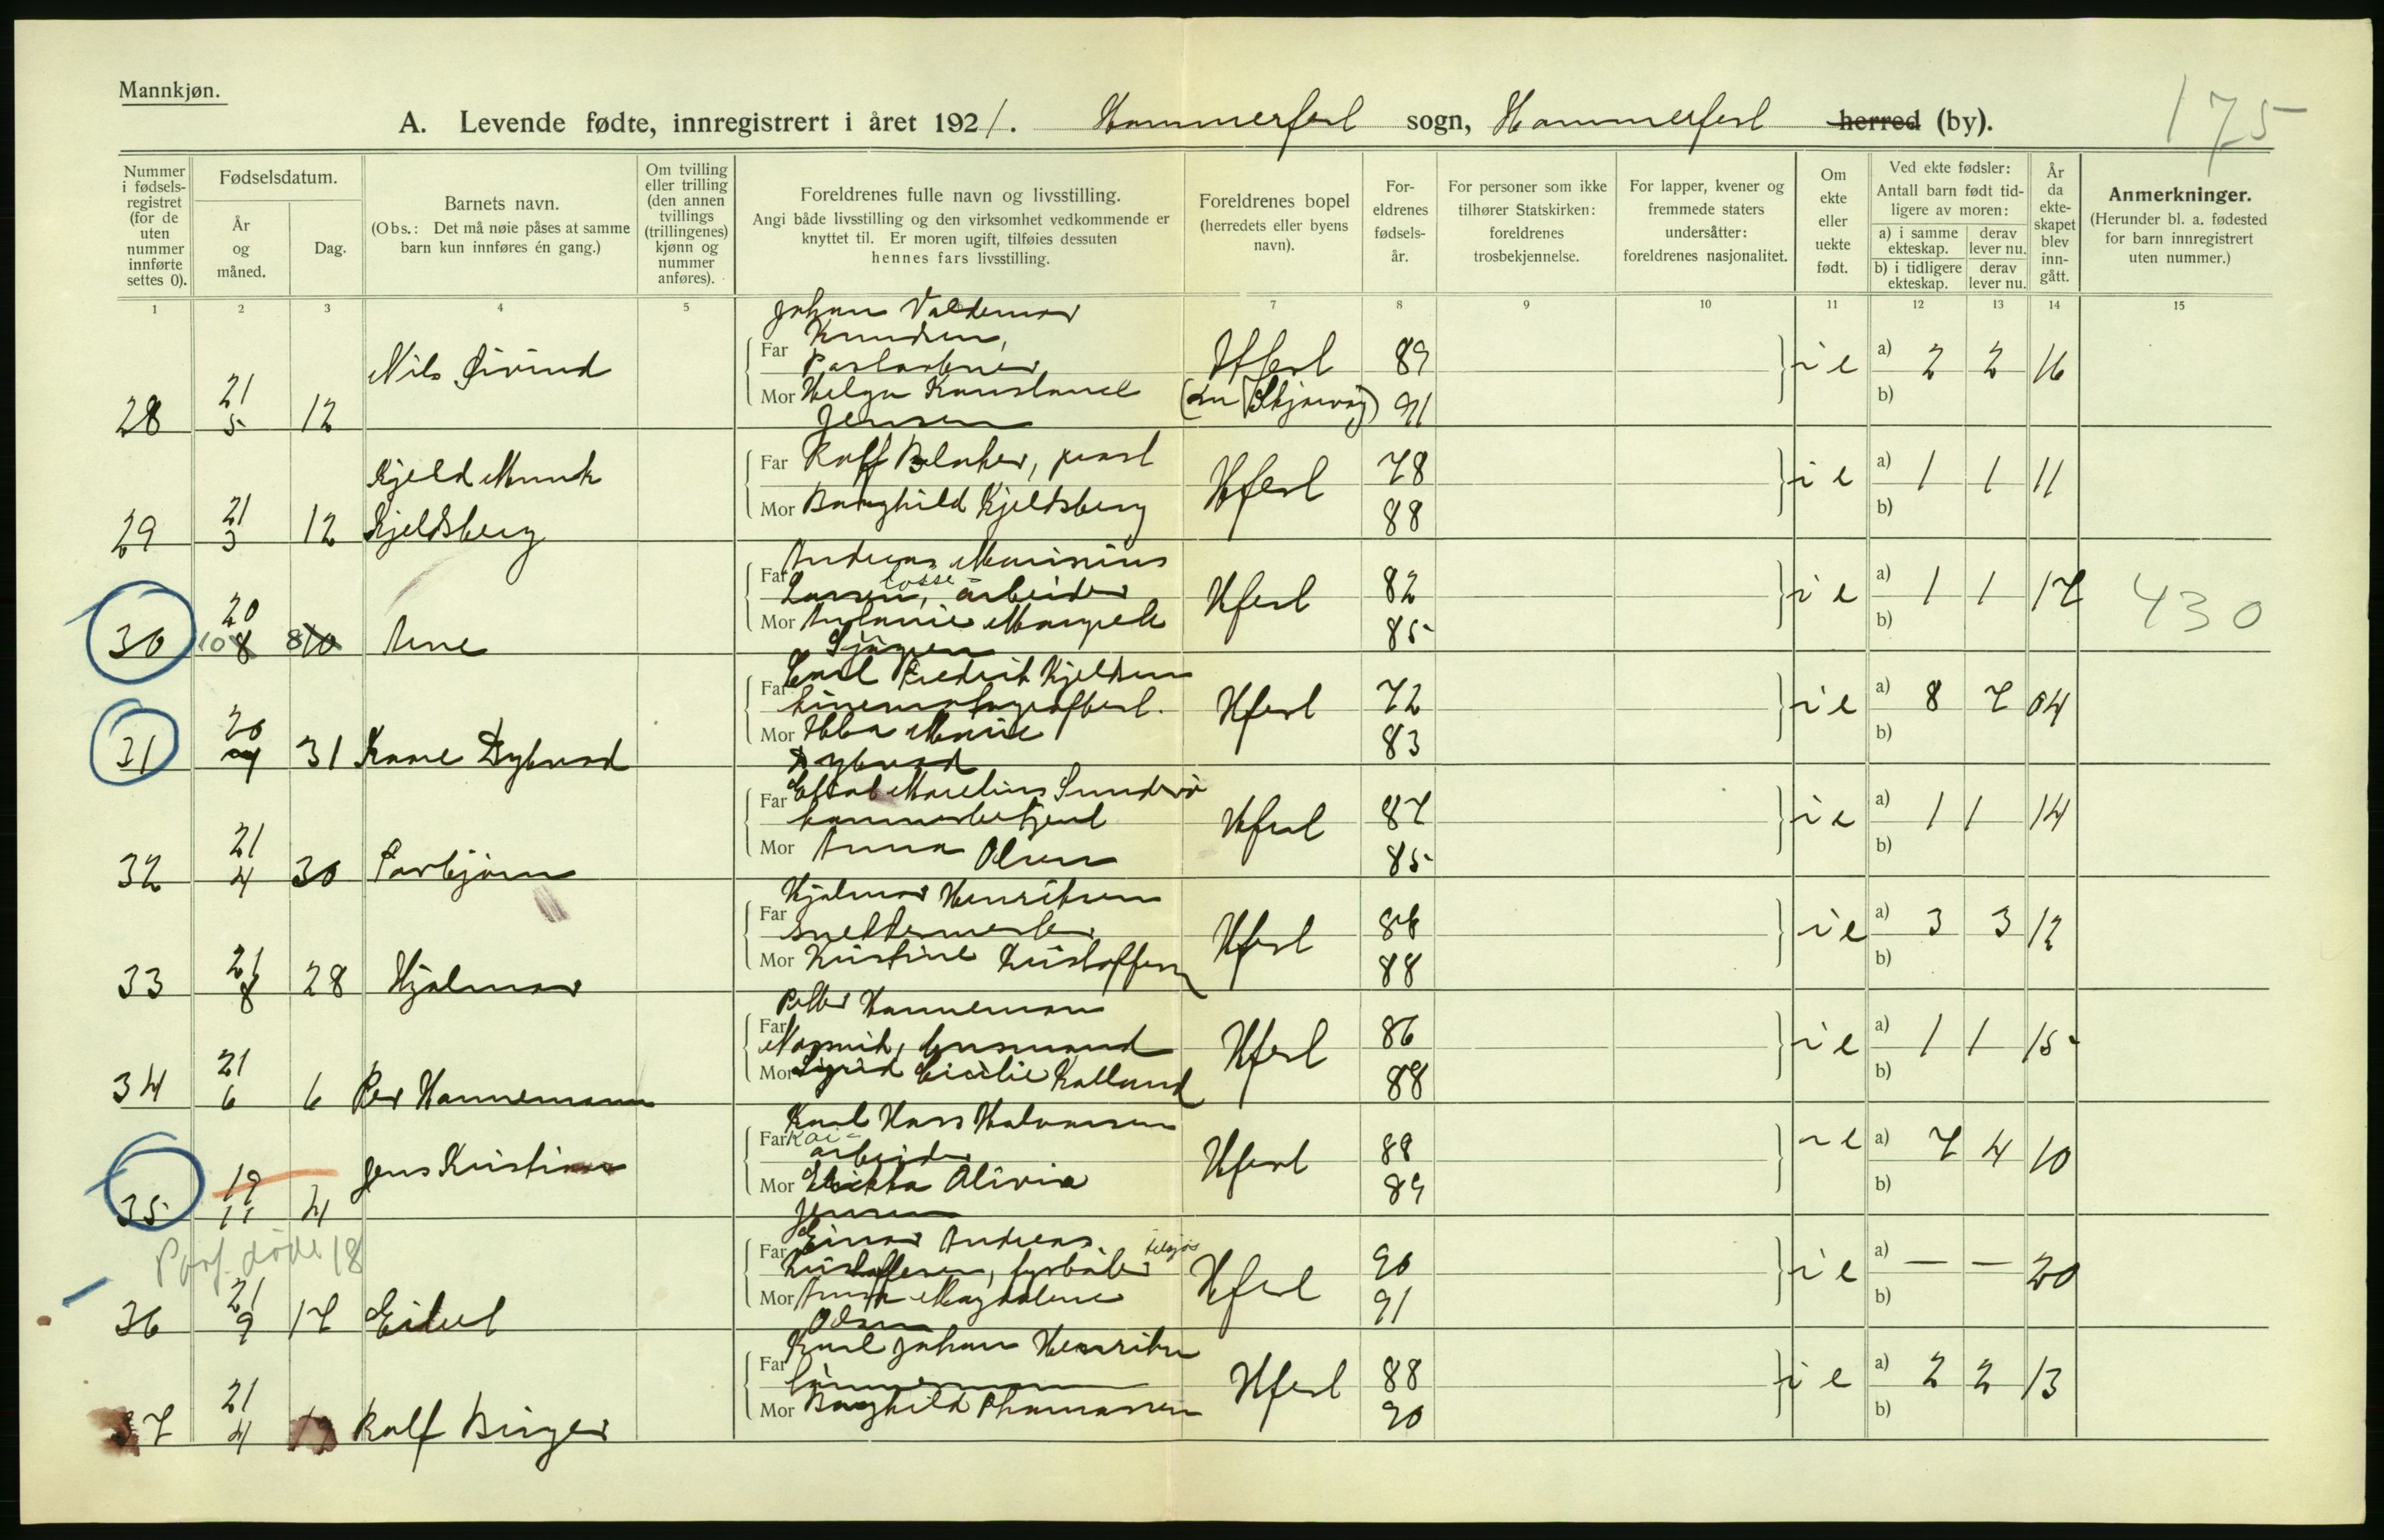 Mannkjøn.
175
A. Levende fødte, innregistrert i året 1921. Hammerfest sogn, Hammerfest herred (by).
Nummer i fødsels-registret (for de uten nummer innførte settes 0).
Fødselsdatum.
År og måned.
Dag.
Barnets navn.
(Obs.: Det må nøie påses at samme barn kun innføres én gang.)
Om tvilling eller trilling (den annen tvillings (trillingenes) kjønn og nummer anføres).
Foreldrenes fulle navn og livsstilling.
Angi både livsstilling og den virksomhet vedkommende er knyttet til. Er moren ugift, tilføies dessuten hennes fars livsstilling.
Foreldrenes bopel (herredets eller byens navn).
For-eldrenes fødsels-år.
For personer som ikke tilhører Statskirken: foreldrenes trosbekjennelse.
For lapper, kvener og fremmede staters undersåtter: foreldrenes nasjonalitet.
Om ekte eller uekte født.
Ved ekte fødsler:
Antall barn født tid-ligere av moren:
a) i samme ekteskap. derav lever nu.
b) i tidligere ekteskap. derav lever nu.
År da ekte-skapet blev inn-gått.
Anmerkninger.
(Herunder bl. a. fødested for barn innregistrert uten nummer.)
1 2 3 4 5 6 7 8 9 10 11 12 13 14 15
Johan Valdemar
Far Knudsen,
Mor Helga Konstanse
Jensen
28 21 5 12 Nils Øivind Hfest 89 91 i e a) 2 2 16 b)
Far Rolf Blaker, prest
Mor Borghild Kjeldsberg
29 21 3 12 Kjeld Munk
Kjeldsberg Hfest 78 88 i e a) 1 1 11 b)
Andreas Marinius
Far Larsen, losse-arbeider
Mor Margrete
30 20 10 8 8 10 Arne Hfest 82 85 i e a) 1 1 17 b) 430
Carl Fredrik Kjeldsen
Far kinematografbest.
Mor Ebba Marie
Dybwad
31 20 31 Kaare Dybwad Hfest 72 83 i e a) 8 7 04 b)
Far Marelius
Mor Anna Olsen
32 21 4 30 Torbjørn Hfest 87 85 i e a) 1 1 14 b)
Hjalmar Henriksen
Far snekkermester
Mor Kristine Kristoffersen
33 21 8 28 Hjalmar Hfest 88 i e a) 3 3 12 b)
Petter Hannemann
Far
Mor Sigrid Cicilie Kolland
34 21 6 6 Per Hannemann Hfest 86 88 i e a) 1 1 15 b)
Karl Hans Halvorsen
Far Kai-
arbeider
Mor Olivia
Jensen
35 19 11 4 Jens Kristian Hfest 88 89 i e a) 7 4 10 b)
døde 18
Einar Andreas
Far Kristoffersen, fyrbøter tilsjøs
Mor Anna Magdalene
Olsen
36 21 9 17 Eidel Hfest 90 91 i e a) — — 20 b)
Karl Johan Henriksen
Far tømmermann
Mor Borghild Thomassen
37 21 4 Rolf Birger Hfest 88 90 i e a) 2 2 13 b)